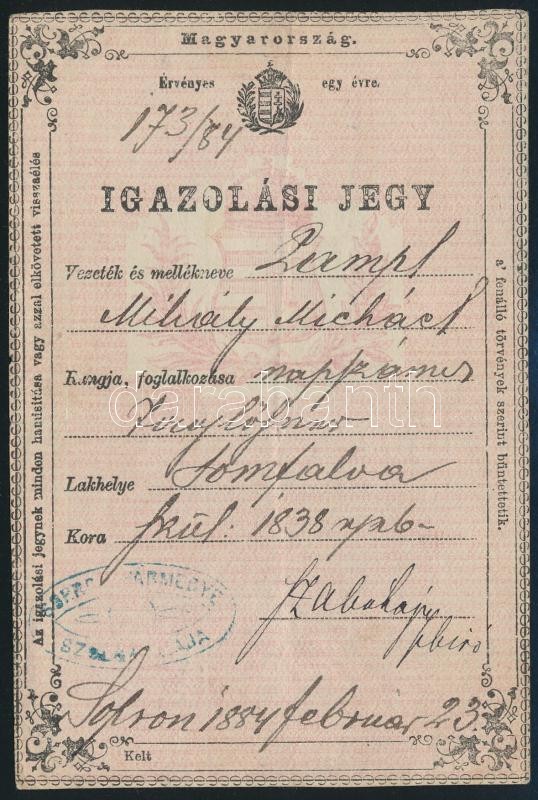 Magyarország.
Érvényes egy évre.
173/84
IGAZOLÁSI JEGY
Vezeték és mellékneve
Mihály Michael
Rangja, foglalkozása napszámos
Lakhelye Tomfalva
Kora szül: 1838
Sopron 1884 február 23.
Kelt
Az igazolási jegynek minden hamisítása vagy azzal elkövetett visszaélés
a' fenálló törvények szerint büntettetik.
darabanth